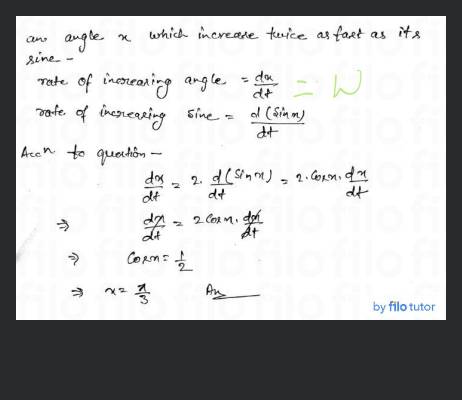 an angle x which increase twice as fast as its
sine -
rate of increasing angle = dx/dt = W
rate of increasing sine = d(sinx)/dt
Accn to question -
dx/dt = 2. d(sinx)/dt = 2.cosx. dx/dt
⇒ dx/dt = 2cosx. dx/dt
⇒ Cosx = 1/2
⇒ x = π/3 Ans
by filo tutor